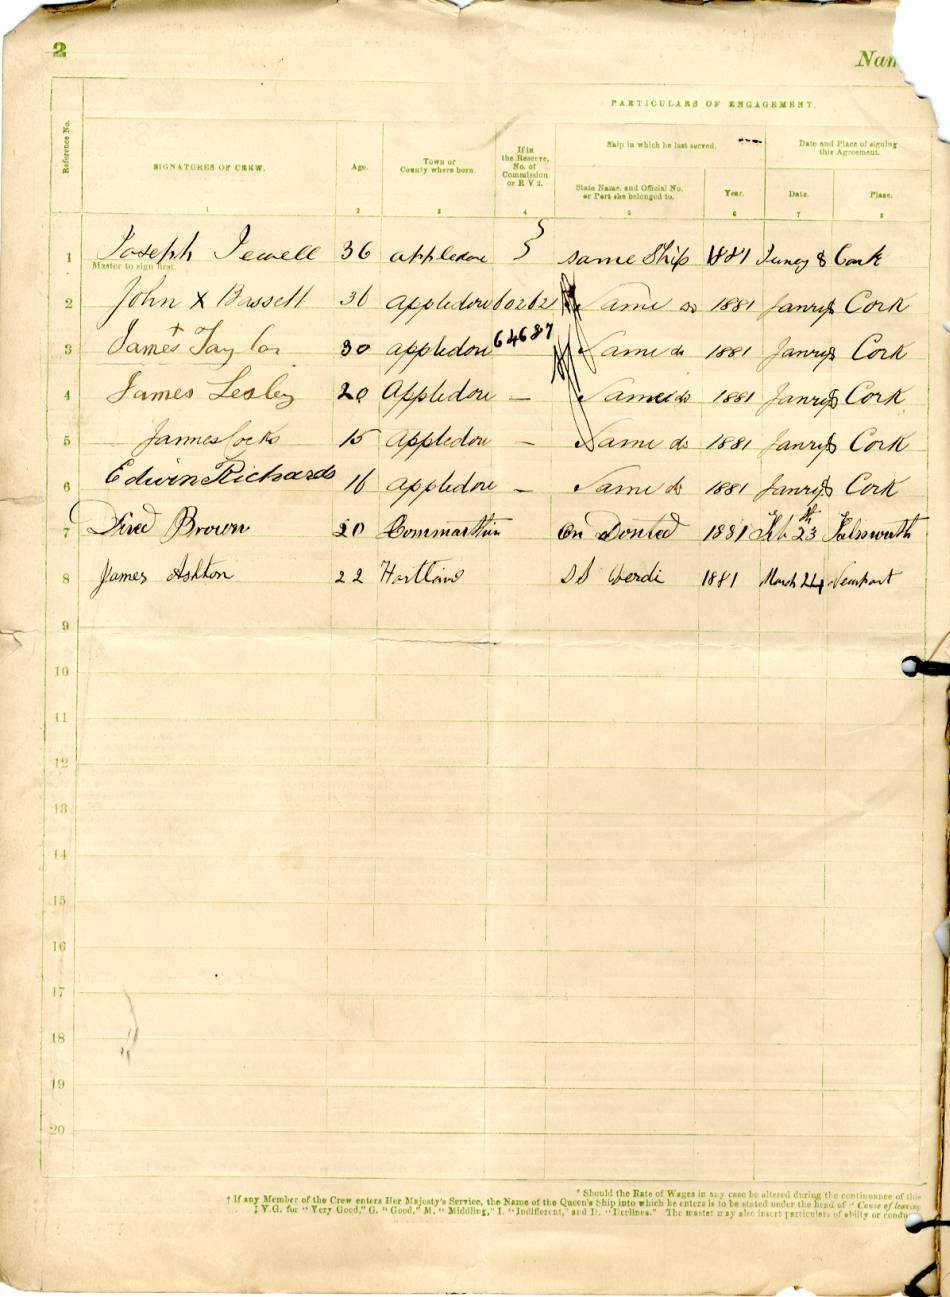 2
Nam
PARTICULARS OF ENGAGEMENT.
Reference No.
SIGNATURES OF CREW.
Age.
Town or
County where born.
If in
the Reserve,
No. of
Commission
or R V 2.
Ship in which he last served.
Date and Place of signing
this Agreement.
State Name, and Official No.
or Port she belonged to.
Year.
Date.
Place.
1 2 3 4 5 6 7 8
1 Joseph Jewell 36 appledore same Ship 1881 8 Cork
Master to sign first.
2 John X Bassett 36 Appledore 60262 Same do 1881 Janry 8 Cork
3 James + Taylor 30 appledore 64687 Same do 1881 Janry 8 Cork
4 James Lesley 20 Appledore — Same do 1881 Janry 8 Cork
5 James Cocks 15 Appledore — Same do 1881 Janry 8 Cork
6 Edwin Richards 16 Appledore — Same do 1881 Janry 8 Cork
7 Brown 20 1881 Feb 23
8 James Ashton 22 Hartland SS Verdi 1881 March 24 Newport
9
10
11
12
13
14
15
16
17
18
19
20
* Should the Rate of Wages in any case be altered during the continuance of this
† If any Member of the Crew enters Her Majesty's Service, the Name of the Queen's Ship into which he enters is to be stated under the head of "Cause of leaving
‡ V.G. for "Very Good," G. "Good," M. "Middling," I. "Indifferent," and D. "Declines." The master may also insert particulars of abilty or conduc